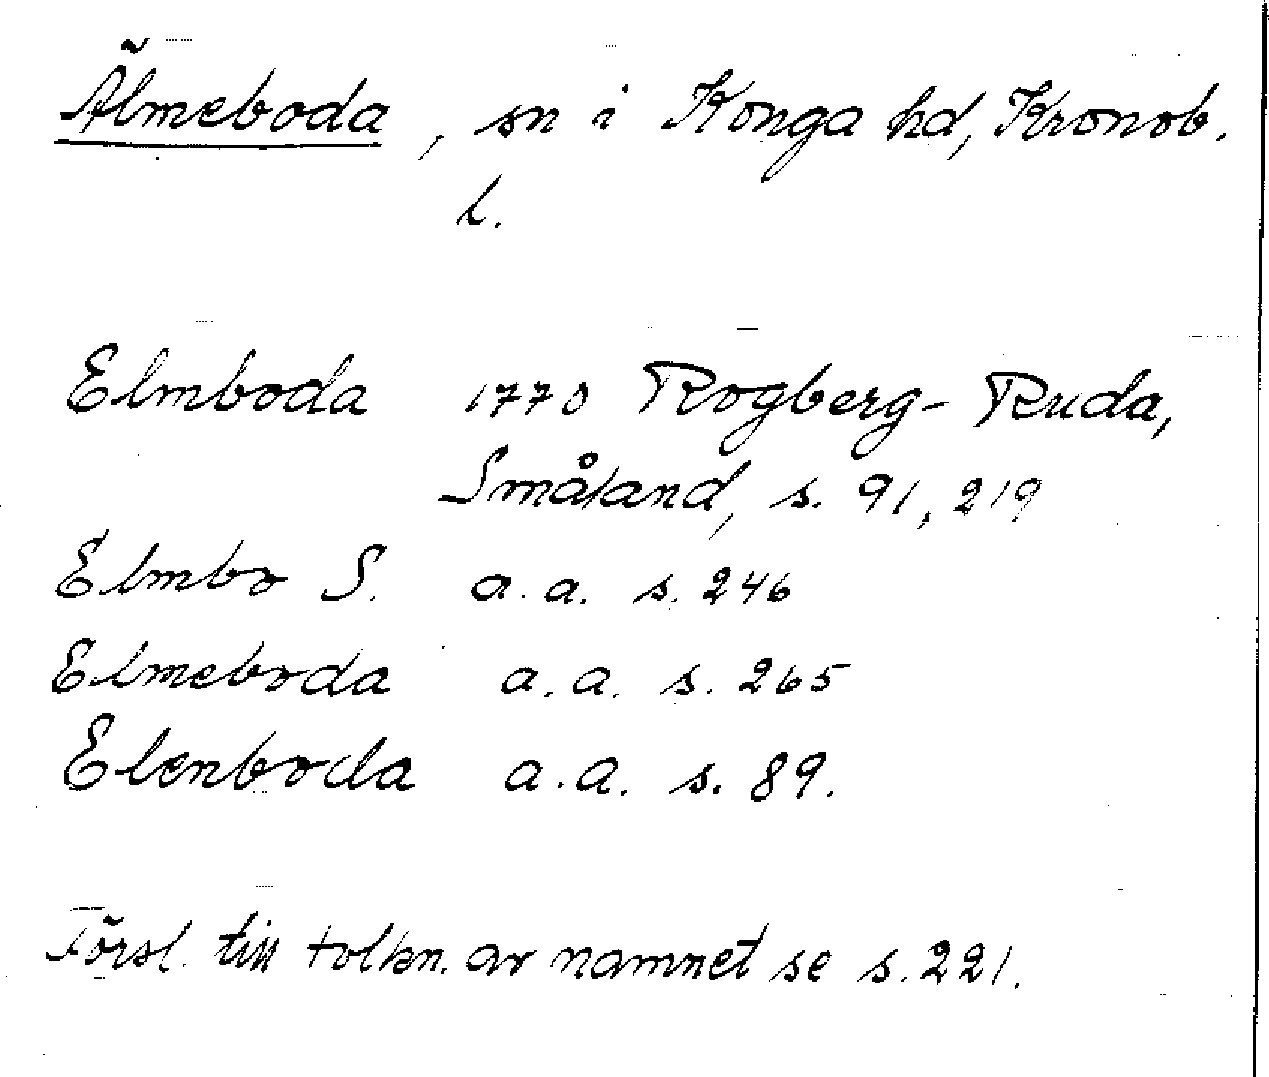 Älmeboda, sn i Konga hd, Kronob.
l.
Elmboda 1770 Rogberg-Ruda,
Småland, s. 91, 219
Elmbo S. a.a. s. 246
Elmeboda a.a. s. 265
Elenboda a.a. s. 89.
Försl. till tolkn. av namnet se s. 221.